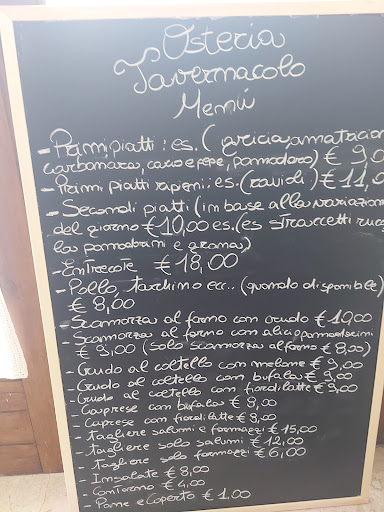 Osteria
Tavernacolo
Menù
- Primi piatti: es. (gricia, amatriciana
carbonara, cacio e pepe, pomodoro) € 9,0
- Primi piatti ripieni: es. (ravioli) € 11,0
- Secondi piatti (in base alla variazione
del giorno € 10,00 es. (es straccetti ruco
la pomodorini e grana)
- Entrecote € 18,00
- Pollo, tacchino ecc.. (quando disponibile)
€ 8,00
- Scamorza al forno con crudo € 10,00
- Scamorza al forno con alici e pomodorini
€ 9,00 (solo scamorza al forno € 8,00)
- Crudo al coltello con melone € 9,00
- Crudo al coltello con bufala € 9,00
- Crudo al coltello con fiordilatte € 9,00
- Caprese con bufala € 8,00
- Caprese con fiordilatte € 8,00
- Tagliere salumi e formaggi € 15,00
- Tagliere solo salumi € 12,00
- Tagliere solo formaggi € 6,00
- Insalate € 8,00
- Contorno € 4,00
- Pane e Coperto € 1,00